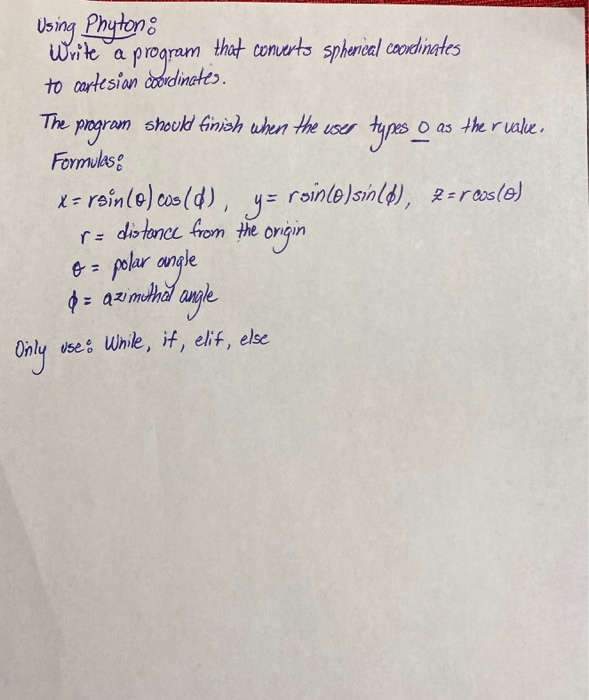 Using Phyton:
Write a program that converts spherical coordinates
to cartesian coordinates.
The program should finish when the user types 0 as the r value.
Formulas:
x = rsin(θ) cos(ϕ), y = rsin(θ)sin(ϕ), z = rcos(θ)
r = distance from the origin
θ = polar angle
ϕ = azimuthal angle
Only use: While, if, elif, else